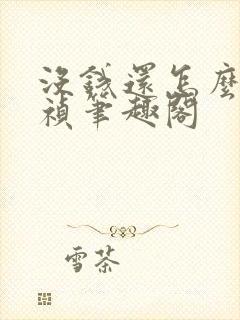 沒錢還怎麼
禎筆趣閣
雪茶